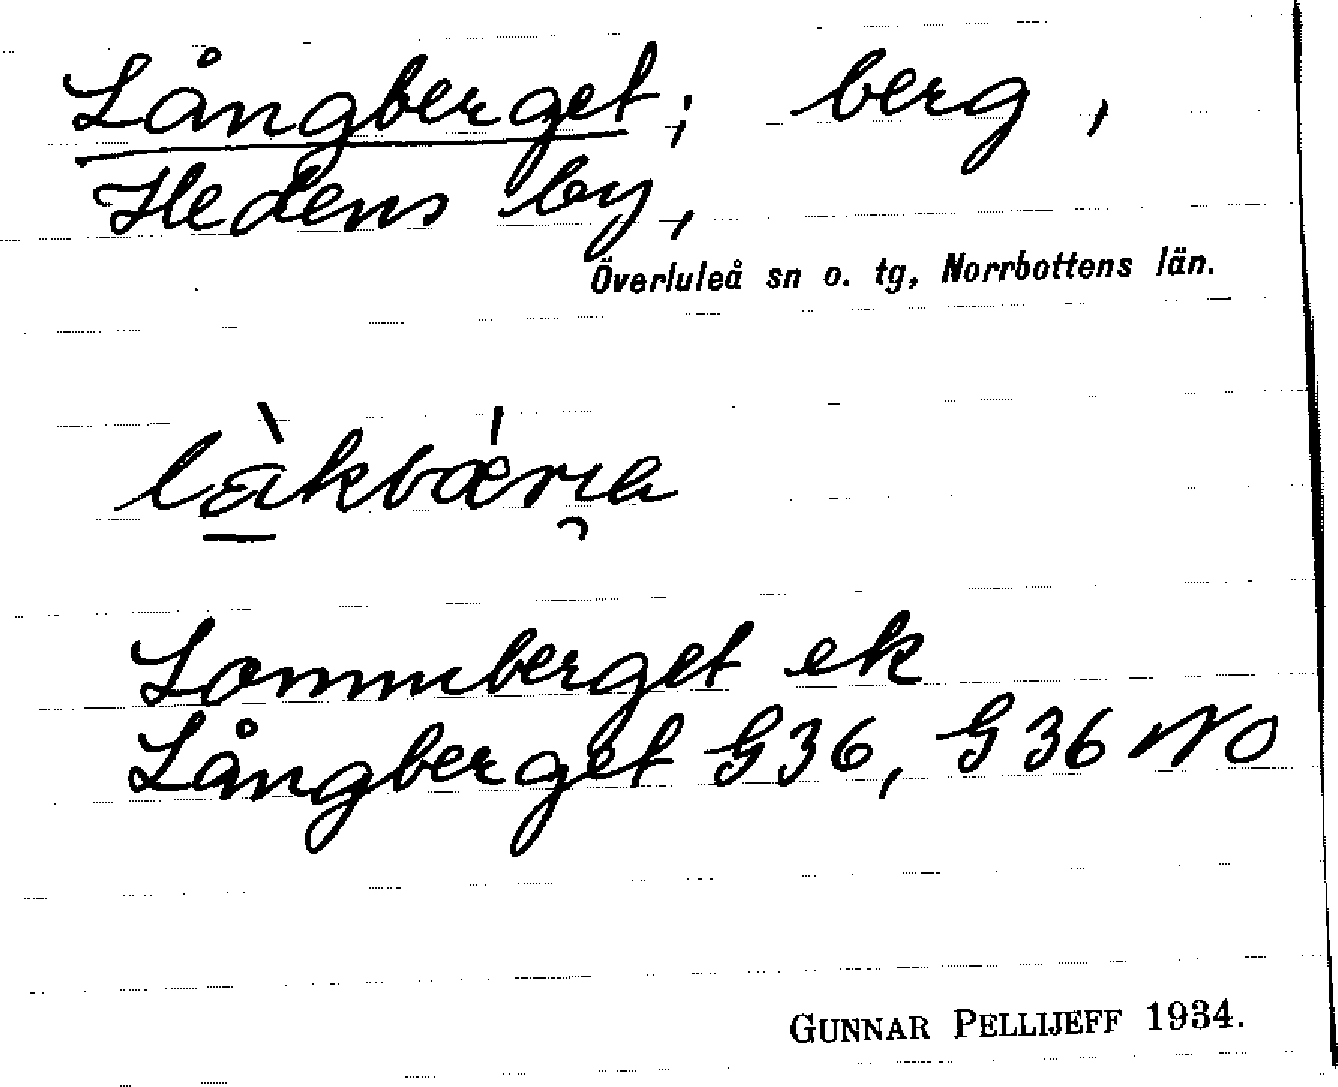 Långberget; berg,
Hedens by,
Överluleå sn o. tg, Norrbottens län.
là̱kbǽrɪa
Lommberget ek
Långberget G36, G36 NO
GUNNAR PELLIJEFF 1934.